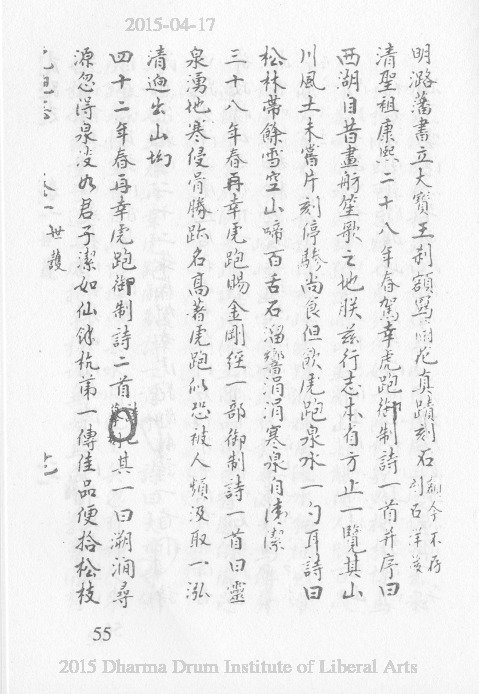 2015-04-17
明潞藩書立大寶王刹額罵關蒞真蹟刻石
清聖祖康熙二十八年春駕幸虎跑御制詩一首并序曰
西湖自昔畫舫笙歌之地朕茲行志本省方止一覽其山
川風土未嘗片刻停驂尚食但飲虎跑泉水一勺耳詩曰
松林帶餘雪空山啼百舌石溜響涓涓寒泉自清潔
三十八年春再幸虎跑賜金剛經一部御制詩一首曰靈
泉湧地寒侵骨勝跡名高著虎跑似恐被人頻汲取一泓
清迥出山坳
四十二年春再幸虎跑御制詩二首其一曰溯澗尋
源忽得泉淡如君子潔如仙餘杭第一傳佳品便拾松枝
卷一 世護
55
2015 Dharma Drum Institute of Liberal Arts